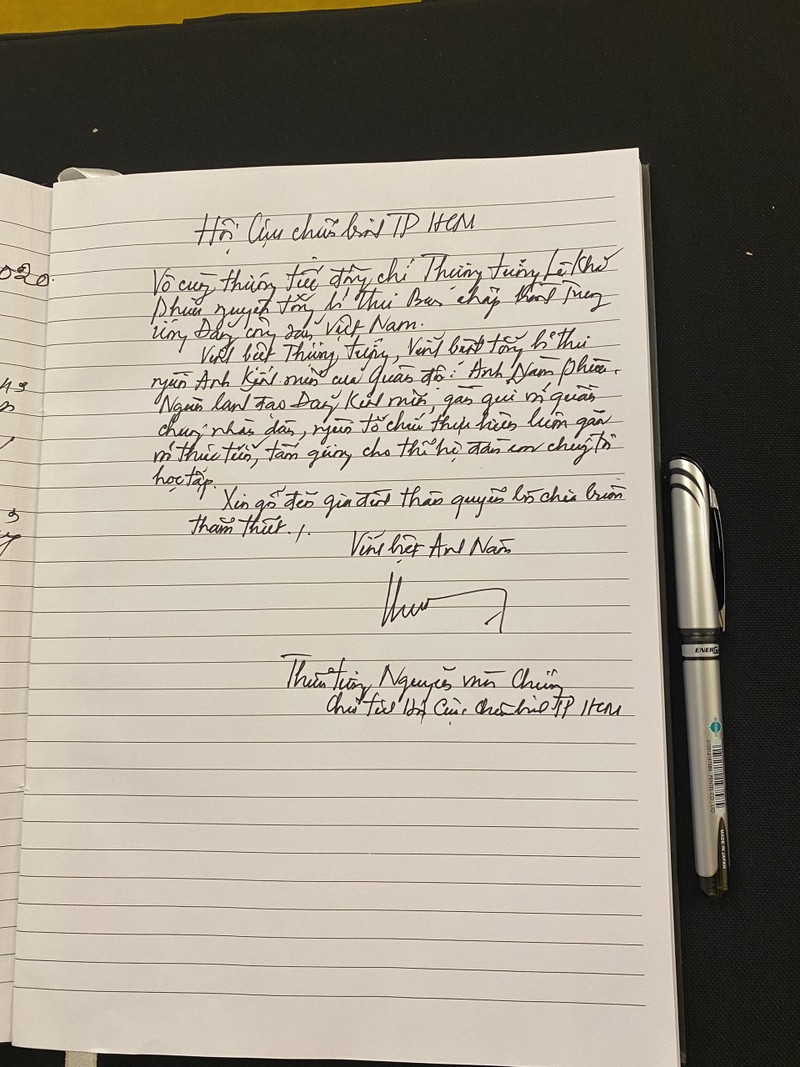 020.
Hội Cựu chiến binh TP HCM
Vô cùng thương tiếc đồng chí Thượng tướng Lê Khả
Phiêu nguyên tổng bí thư Ban chấp hành Trung
ương Đảng cộng sản Việt Nam.
Vĩnh biệt Thượng tướng, Vĩnh biệt tổng bí thư
người Anh kính mến của Quân đội: Anh Năm
Người lãnh đạo Đảng kính mến, gần gũi với quần
chúng nhân dân, người tổ chức thực hiện luôn gắn
với thực tiễn, tấm gương cho thế hệ đàn em chúng tôi
học tập.
Xin gởi đến gia đình thân quyến lời chia buồn
thắm thiết./.
Vĩnh biệt Anh Năm
Thiếu tướng Nguyễn văn Chương
Chủ tịch Hội Cựu chiến binh TP HCM
ENERG
MADE IN JAPAN